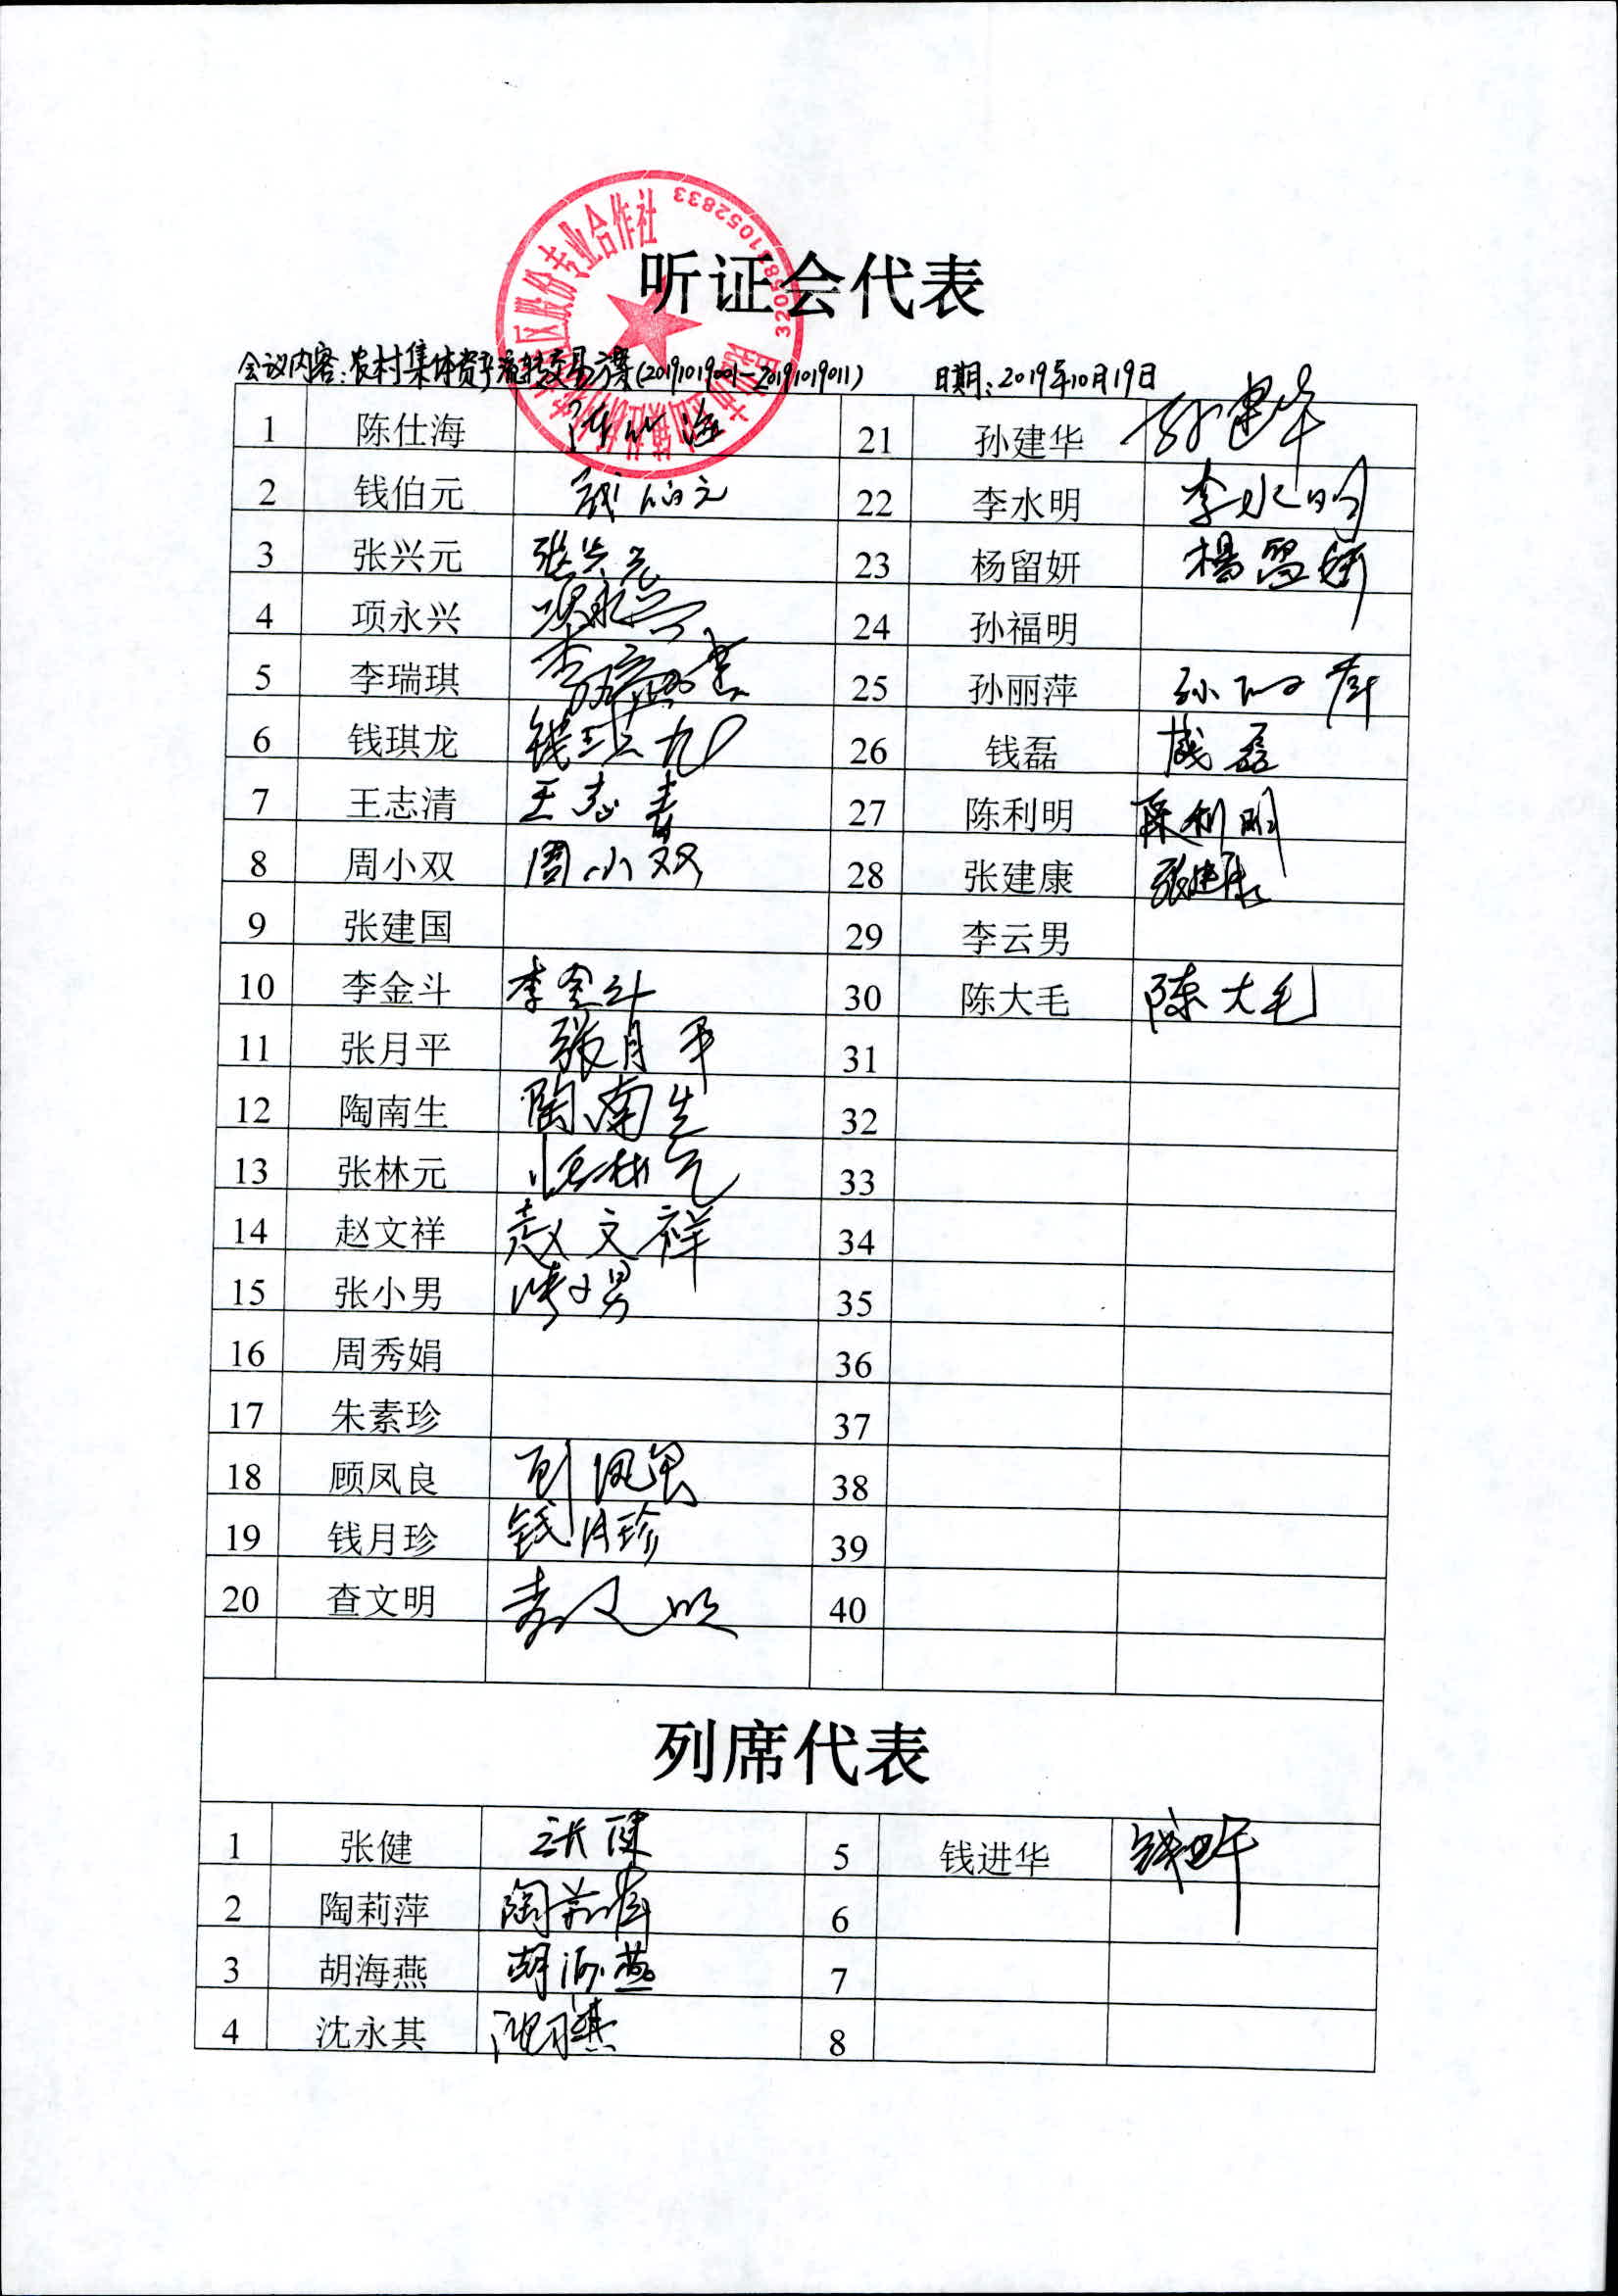 听证会代表
会议内容:农村集体资产流转交易方案(20191019001-20191019011) 日期:2019年10月19日
1 陈仕海 陈仕海 21 孙建华 孙建华
2 钱伯元 钱伯元 22 李水明 李水明
3 张兴元 张兴元 23 杨留妍 楊留妍
4 项永兴 项永兴 24 孙福明
5 李瑞琪 李瑞琪 25 孙丽萍 孙丽萍
6 钱琪龙 钱琪龙 26 钱磊 钱磊
7 王志清 王志清 27 陈利明 陈利明
8 周小双 周小双 28 张建康 张建康
9 张建国 29 李云男
10 李金斗 李金斗 30 陈大毛 陈大毛
11 张月平 张月平 31
12 陶南生 陶南生 32
13 张林元 张林元 33
14 赵文祥 赵文祥 34
15 张小男 张小男 35
16 周秀娟 36
17 朱素珍 37
18 顾凤良 顾凤良 38
19 钱月珍 钱月珍 39
20 查文明 查文明 40
列席代表
1 张健 张健 5 钱进华 钱进华
2 陶莉萍 陶莉萍 6
3 胡海燕 胡海燕 7
4 沈永其 沈永其 8
股份专业合作社
3205831052833